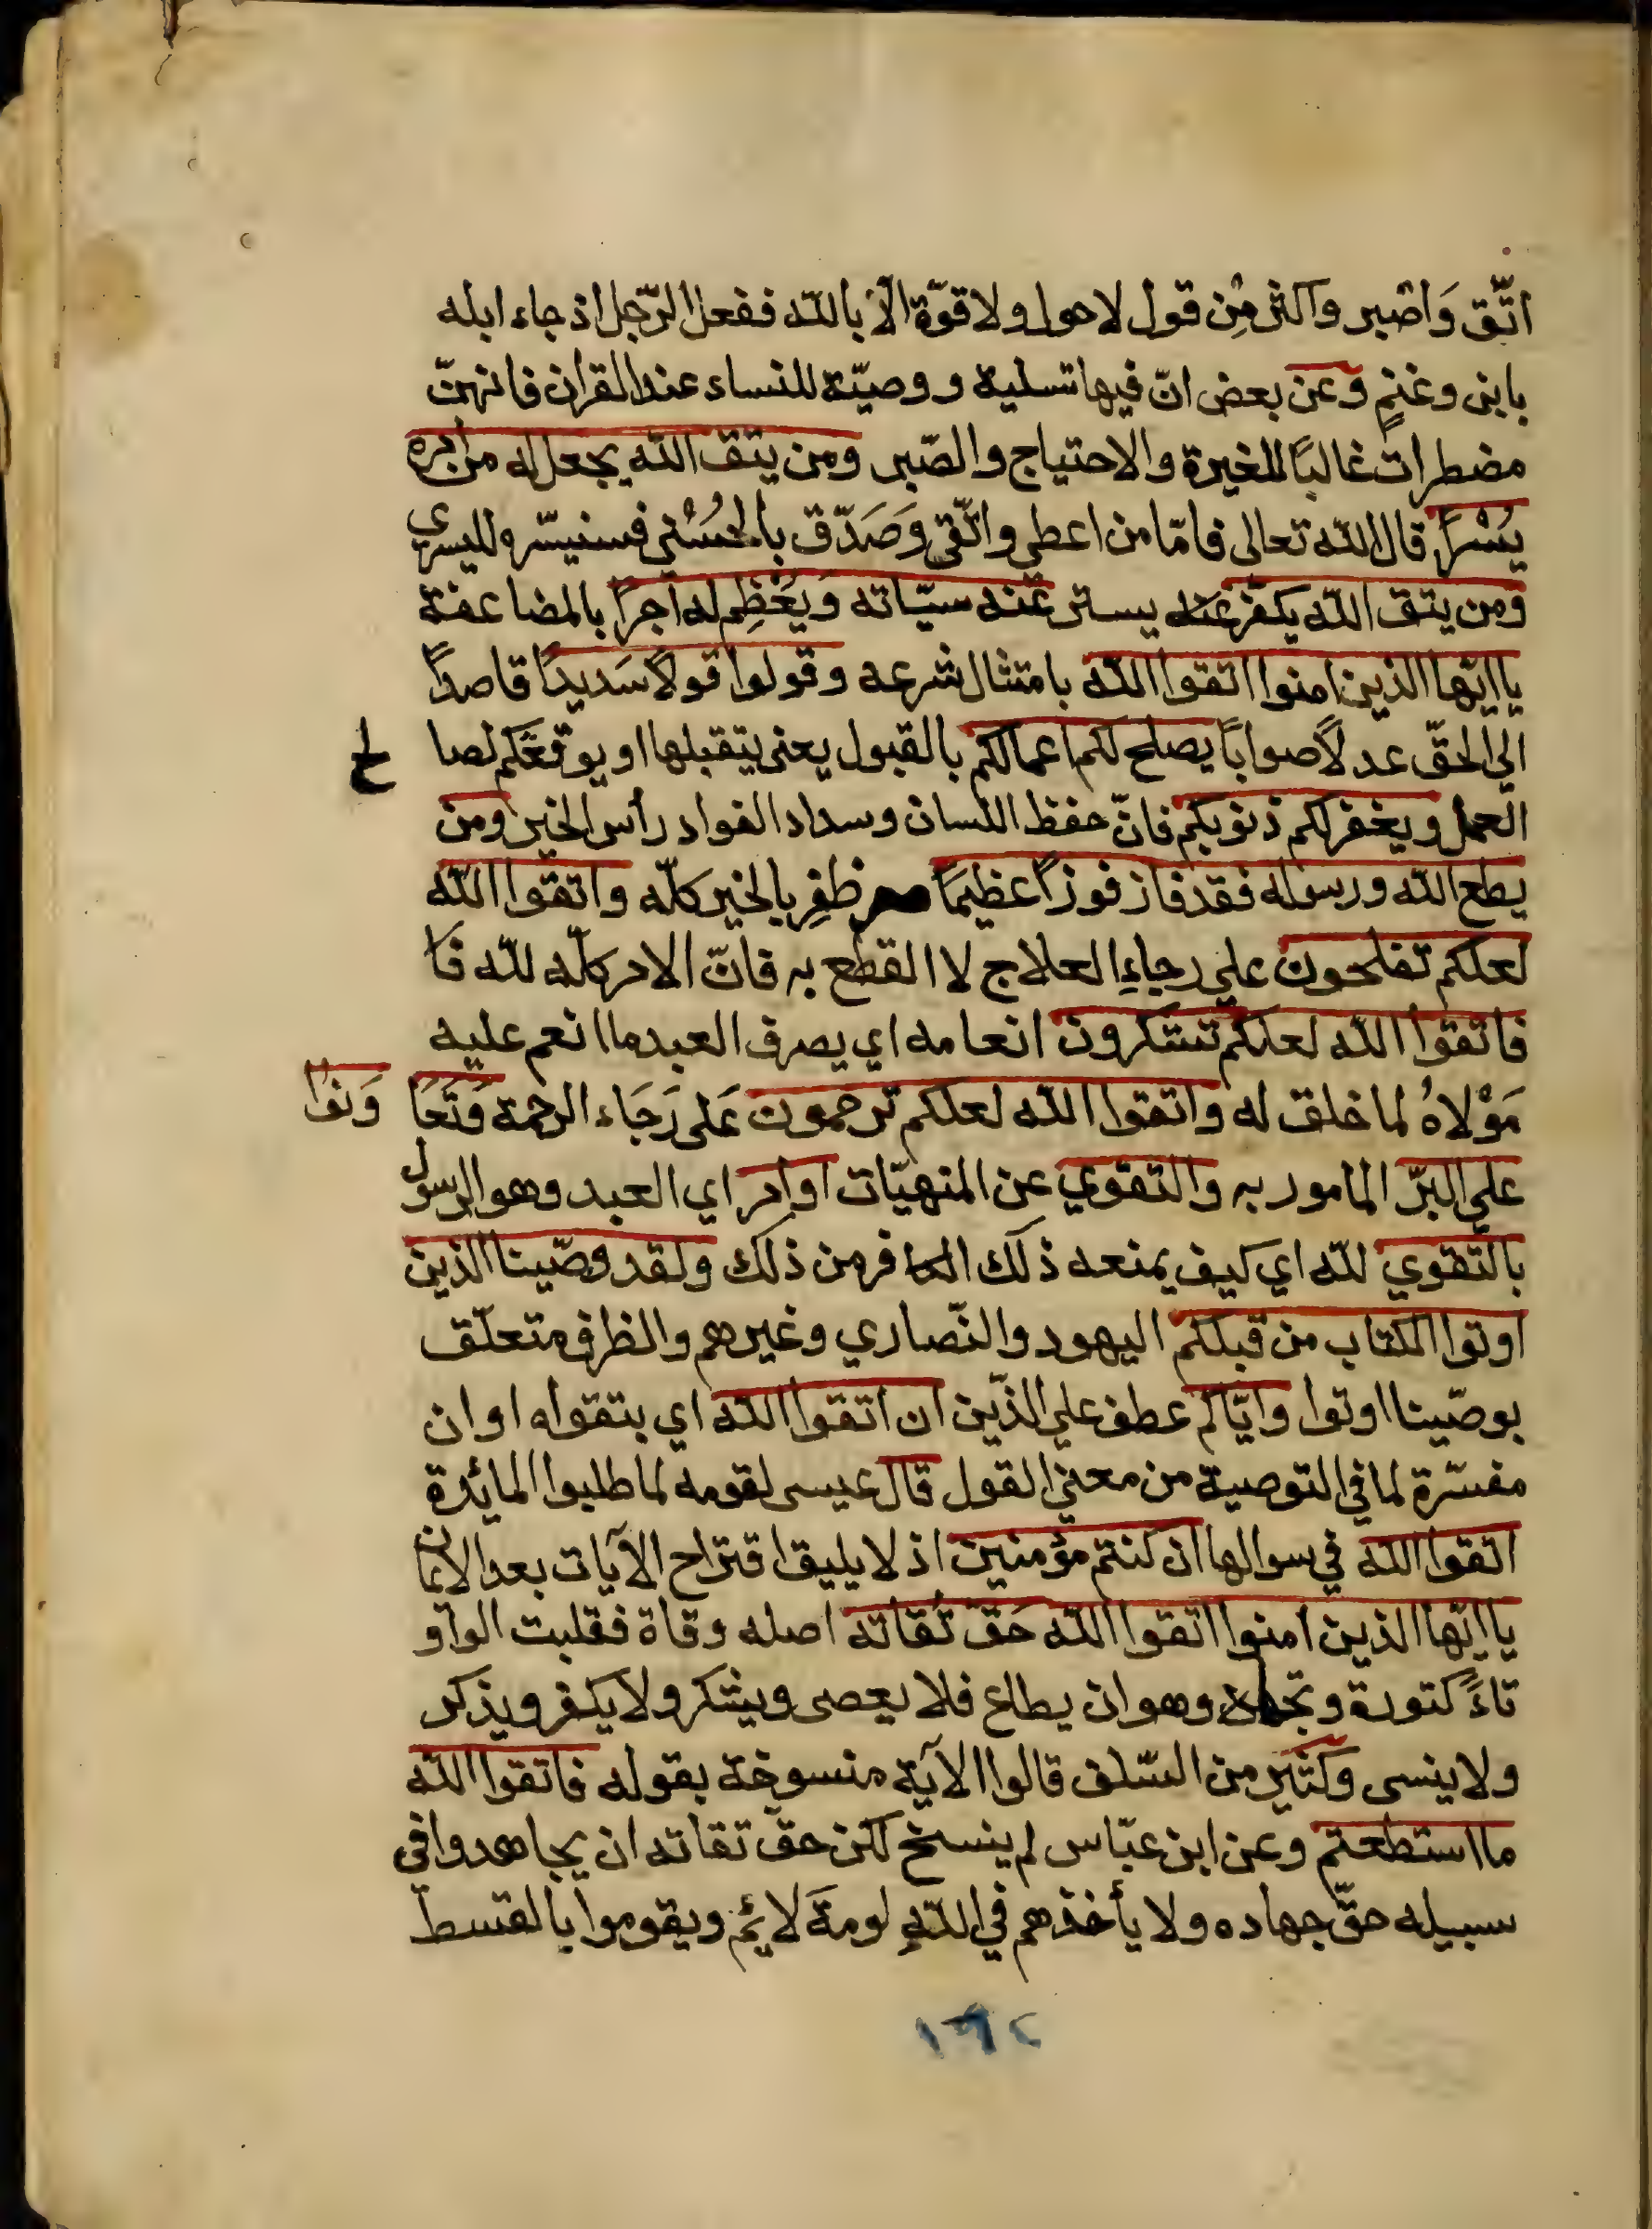 اتّق وَاصبر واكثر مِن قول لاحول ولا قوّة الا بالله ففعل الرّجل اذ جاء ابله
بابنى وغنمٍ وعن بعض انّ فيها تسلية ووصيّة للنساء عند القران فانهنّ
مضطرات غالبًا للغيرة والاحتياج والصّبر ومن يتق الله يجعل له من امره
يُسْرًا قال الله تعالى فامّا من اعطى واتّقى وَصَدّق بالحُسْنى فسنيسّره لليسرى
ومن يتق الله يكفّر عنه يستر عنه سيّاته وَيُعْظِم له اجرًا بالمضاعفة
يا ايّها الذين امنوا اتقوا الله بامتثال شرعه وقولوا قولًا سَديدًا قاصدًا
الي الحقّ عدلًا صوابًا يصلح لكم اعمالكم بالقبول يعنى يتقبلها او يوفقكم لصا لح
العمل ويغفر لكم ذنوبكم فانّ حفظ اللسان وسداد القواد رأس الخير ومن
يطع الله ورسوله فقد فاز فوزًا عظيمًا ظفِر بالخير كلّه واتقوا الله
لعلكم تفلحون علي رجاءِ العلاج لا القطع به فانّ الامر كلّه لله فَا
فاتقوا الله لعلكم تشكرون انعامه اي يصرف العبد ما انعم عليه
مَوْلاهُ لما خلق له واتقوا الله لعلكم ترحمون عَلى رَجَاء الرحمة وَتَعَا وَنوا
علي البرّ المامور به والتقوي عن المنهيّات او امر اي العبد وهو الرسول
بالتّقوي لله اي كيف يمنعه ذلك الكافر من ذلك ولقد وصّينا الذين
اوتوا الكتاب من قبلكم اليهود والنّصاري وغيرهم والظرف متعلّق
بوصّينا اوتوا وايّاكم عطف علي الذّين ان اتقوا الله اي بتقواه او ان
مفسّرة لما في التوصية من معني القول قال عيسى لقومه لما طلبوا المائدة
اتقوا الله في سوالها ان كنتم مؤمنين اذ لا يليق اقتراح الآيات بعد الايمان
يا ايّها الذين امنوا اتقوا الله حَقّ تُقاته اصله وقاة فقلبت الواو
تاءً كتورة وتجاه وهو ان يطاع فلا يعصى ويشكر ولا يكفر ويذكر
ولا ينسى وكثير من السّلف قالوا الآية منسوخة بقوله فاتقوا الله
ما استطعتم وعن ابن عبّاس لم ينسخ لكن حقّ تقاته ان يجاهدوا في
سبيله حقّ جهاده ولا يأخذهم في اللهِ لومةَ لائم ويقوموا بالقسط